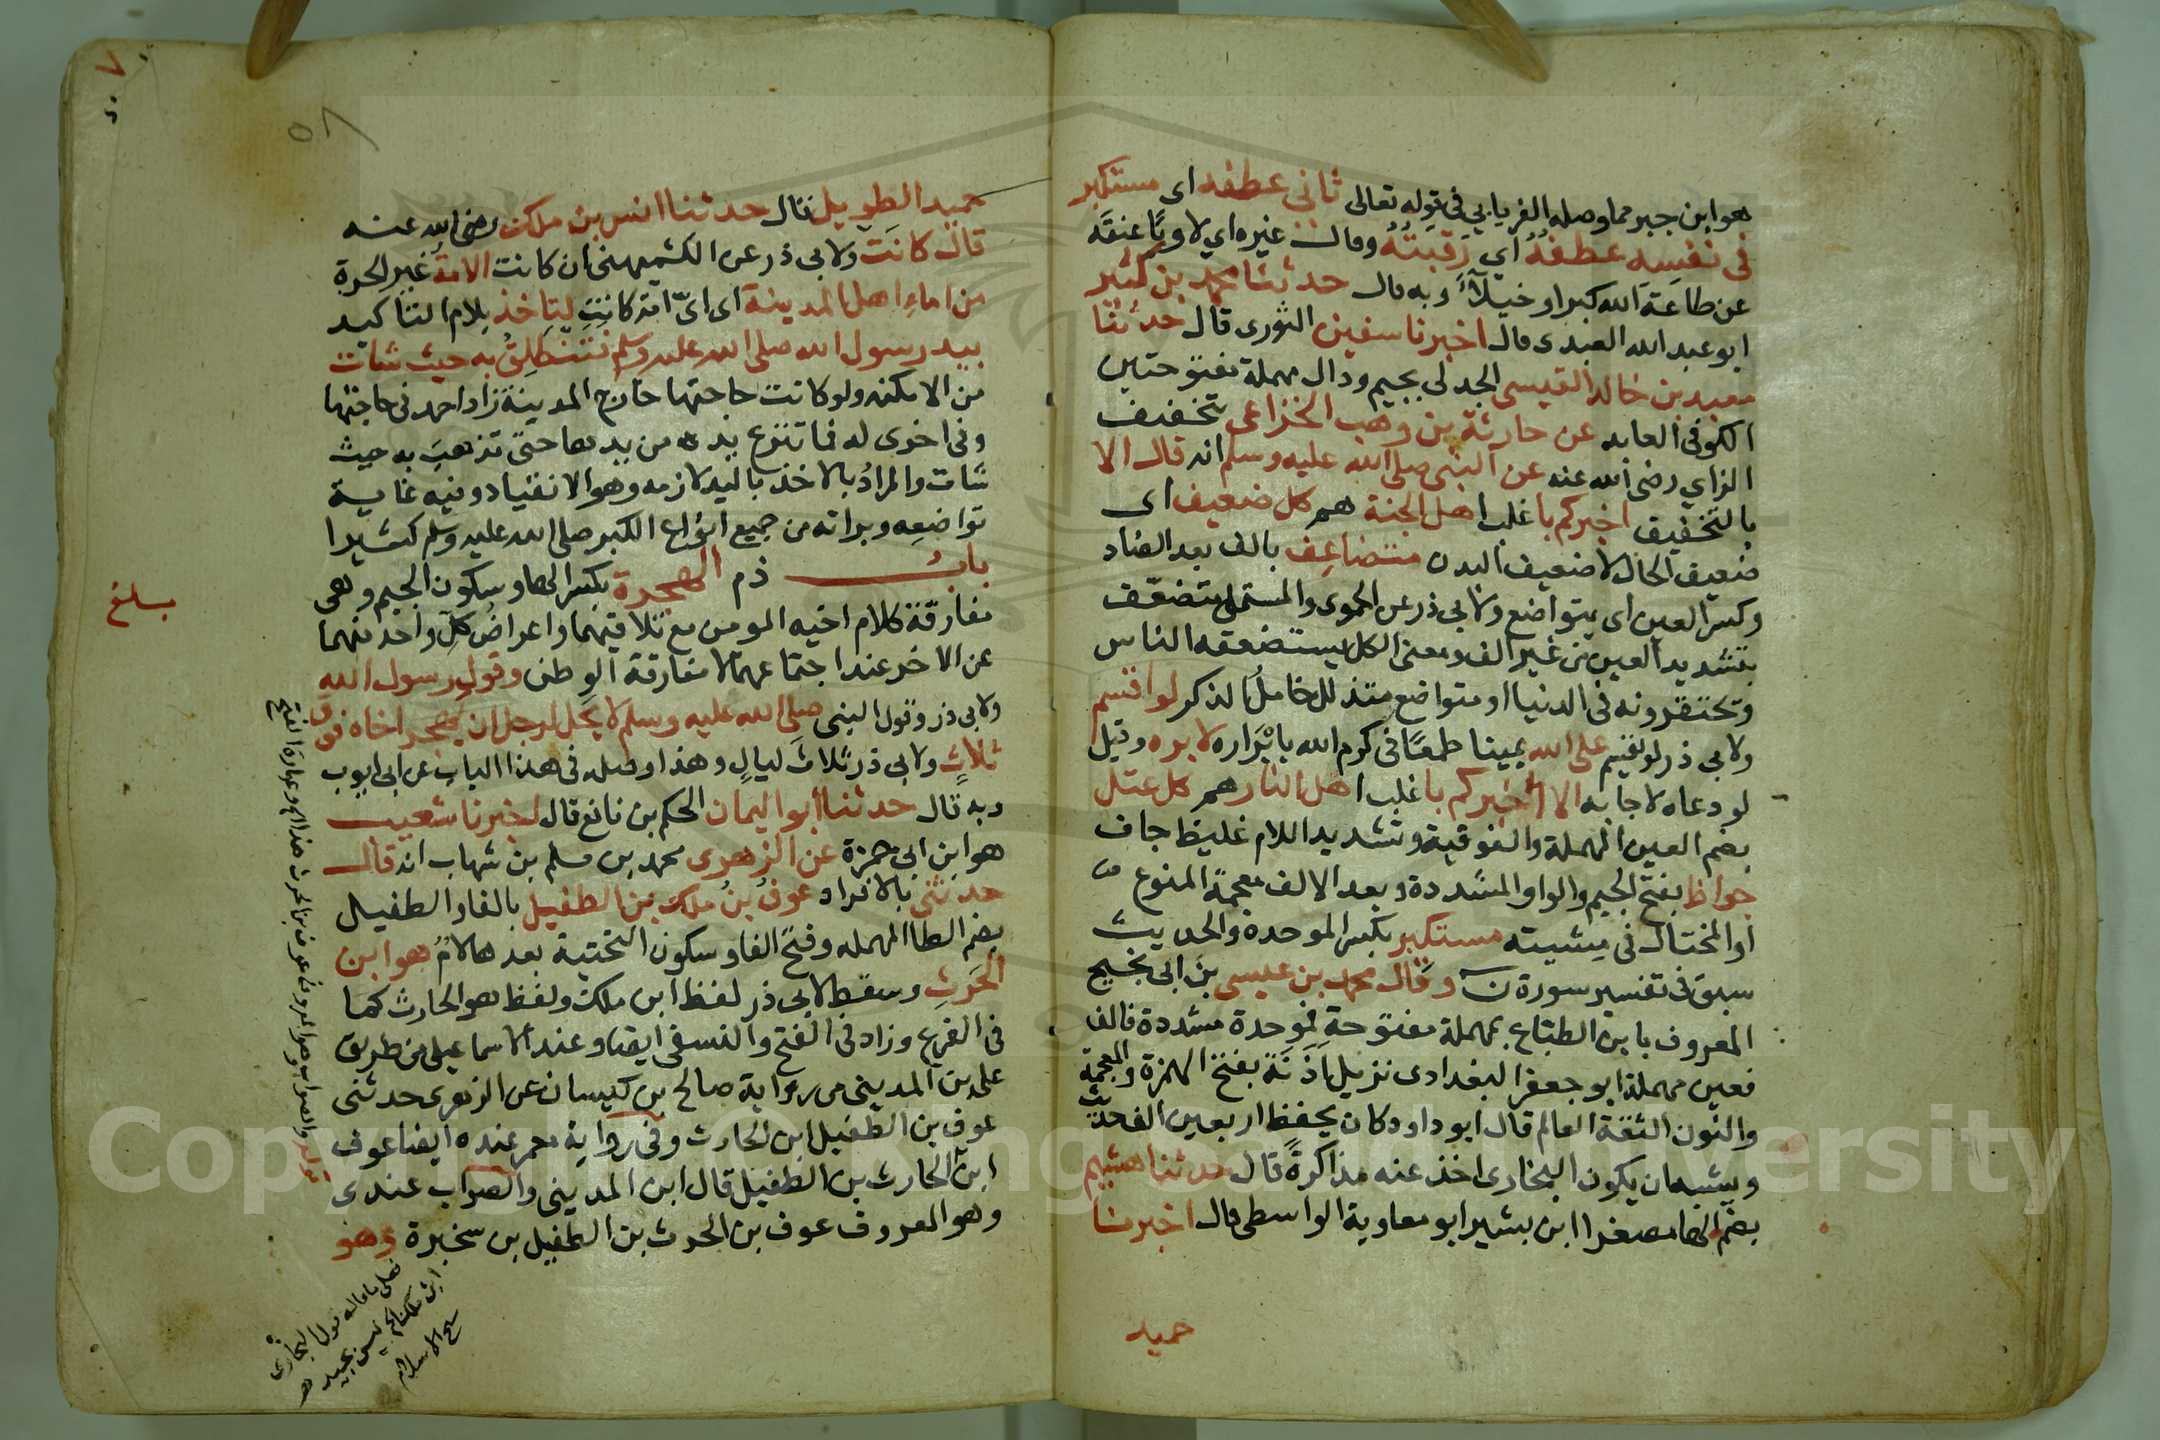 هو ابن جبر مما وصله الفريابي في قوله تعالى ثاني عطفه اى مستكبر
فى نفسه عطفه اي رقبته وقال غيره اي لاويا عنقه
عن طاعة الله كبرا وخيلاء وبه قال حدثنا محمد بن كثير
ابو عبد الله العبدى قال اخبرنا سفين الثورى قال حدثنا
معبد بن خالد القيسى الجدلى بجيم ودال مهملة مفتوحتين
الكوفى العابد عن حارثة بن وهب الخزاعى بتخفيف
الزاي رضى الله عنه عن النبى صلى الله عليه وسلم انه قال الا
بالتخفيف اخبركم باغلب اهل الجنة هم كل ضعيف اى
ضعيف الحال لا ضعيف البدن متضاعف بالف بعد الضاد
وكسر العين اى يتواضع ولابى ذر عن الحموى والمستملى متضعف
بتشديد العين من غير الف ومعنى الكل يستضعفه الناس
ويحتقرونه فى الدنيا او متواضع متذلل خامل الذكر لو اقسم
ولابى ذر لو يقسم على الله يمينا طمعا فى كرم الله بابراره لابره وقيل
لو دعاه لاجابه الا اخبركم باغلب اهل النار هم كل عتل
بضم العين المهملة والفوقية وتشديد اللام غليظ جاف
جواظ بفتح الجيم والواو المشددة وبعد الالف معجمة المنوع
او المختال فى مشيته مستكبر بكسر الموحدة والحديث
سبق فى تفسير سورة ن وقال محمد بن عيسى بن ابى نجيح
المعروف بابن الطباع بمهملة مفتوحة فموحدة مشددة فالف
فعين مهملة ابو جعفر البغدادى نزيل اذنة بفتح الهمزة والمعجمة
والنون الثقة العالم قال ابو داود كان يحفظ اربعين الف حديث
ويشبه ان يكون البخارى اخذ عنه مذاكرة قال حدثنا هشيم
بضم الها مصغرا ابن بشير ابو معاوية الواسطى قال اخبرنا
حميد
٥٨
حميد الطويل قال حدثنا انس بن ملك رضى الله عنه
قال كانت ولابى ذر عن الكشميهنى ان كانت الامة غير الحرة
من اماء اهل المدينة اى اىّ امة كانت لتاخذ بلام التاكيد
بيد رسول الله صلى الله عليه وسلم فتنطلق به حيث شات
من الامكنه ولو كانت حاجتها خارج المدينة زاد احمد فى حاجتها
وفى اخرى له فما تنزع يده من يدها حتى تذهب به حيث
شات والمراد بالاخذ باليد لازمه وهو الانقياد وفيه غاية
تواضعه وبراته من جميع انواع الكبر صلى الله عليه وسلم كثيرا
باب ذم الهجرة بكسر الها وسكون الجيم وهى
مفارقة كلام اخيه المومن مع تلاقيهما واعراض كل واحد منهما
عن الاخر عند اجتماعهما لا مفارقة الوطن وقول رسول الله
ولابى ذر وقول النبى صلى الله عليه وسلم لا يحل لرجل ان يهجر اخاه فوق
ثلاث ولابى ذر ثلاث ليال وهذا وصله فى هذا الباب عن ابى ايوب
وبه قال حدثنا ابو اليمان الحكم بن نافع قال اخبرنا شعيب
هو ابن ابى حمزة عن الزهرى محمد بن مسلم بن شهاب انه قال
حدثنى بالافراد عوف بن ملك بن الطفيل بالفا والطفيل
بضم الطا المهمله وفتح الفا وسكون التحتية بعدها لام هو ابن
الحرث وسقط لابى ذر لفظ ابن ملك ولفظ هو الحارث كما
فى الفرع وزاد فى الفتح والنسفى ايضا وعند الاسماعيلى من طريق
على بن المدينى من رواية صالح بن كيسان عن الزهرى حدثنى
عوف بن الطفيل ابن الحارث وفى رواية معمر عنده ايضا عوف
ابن الحارث بن الطفيل قال ابن المدينى والصواب عندى
وهو المعروف عوف بن الحرث بن الطفيل بن سخبرة وهو
بلغ
شيخ الاسلام